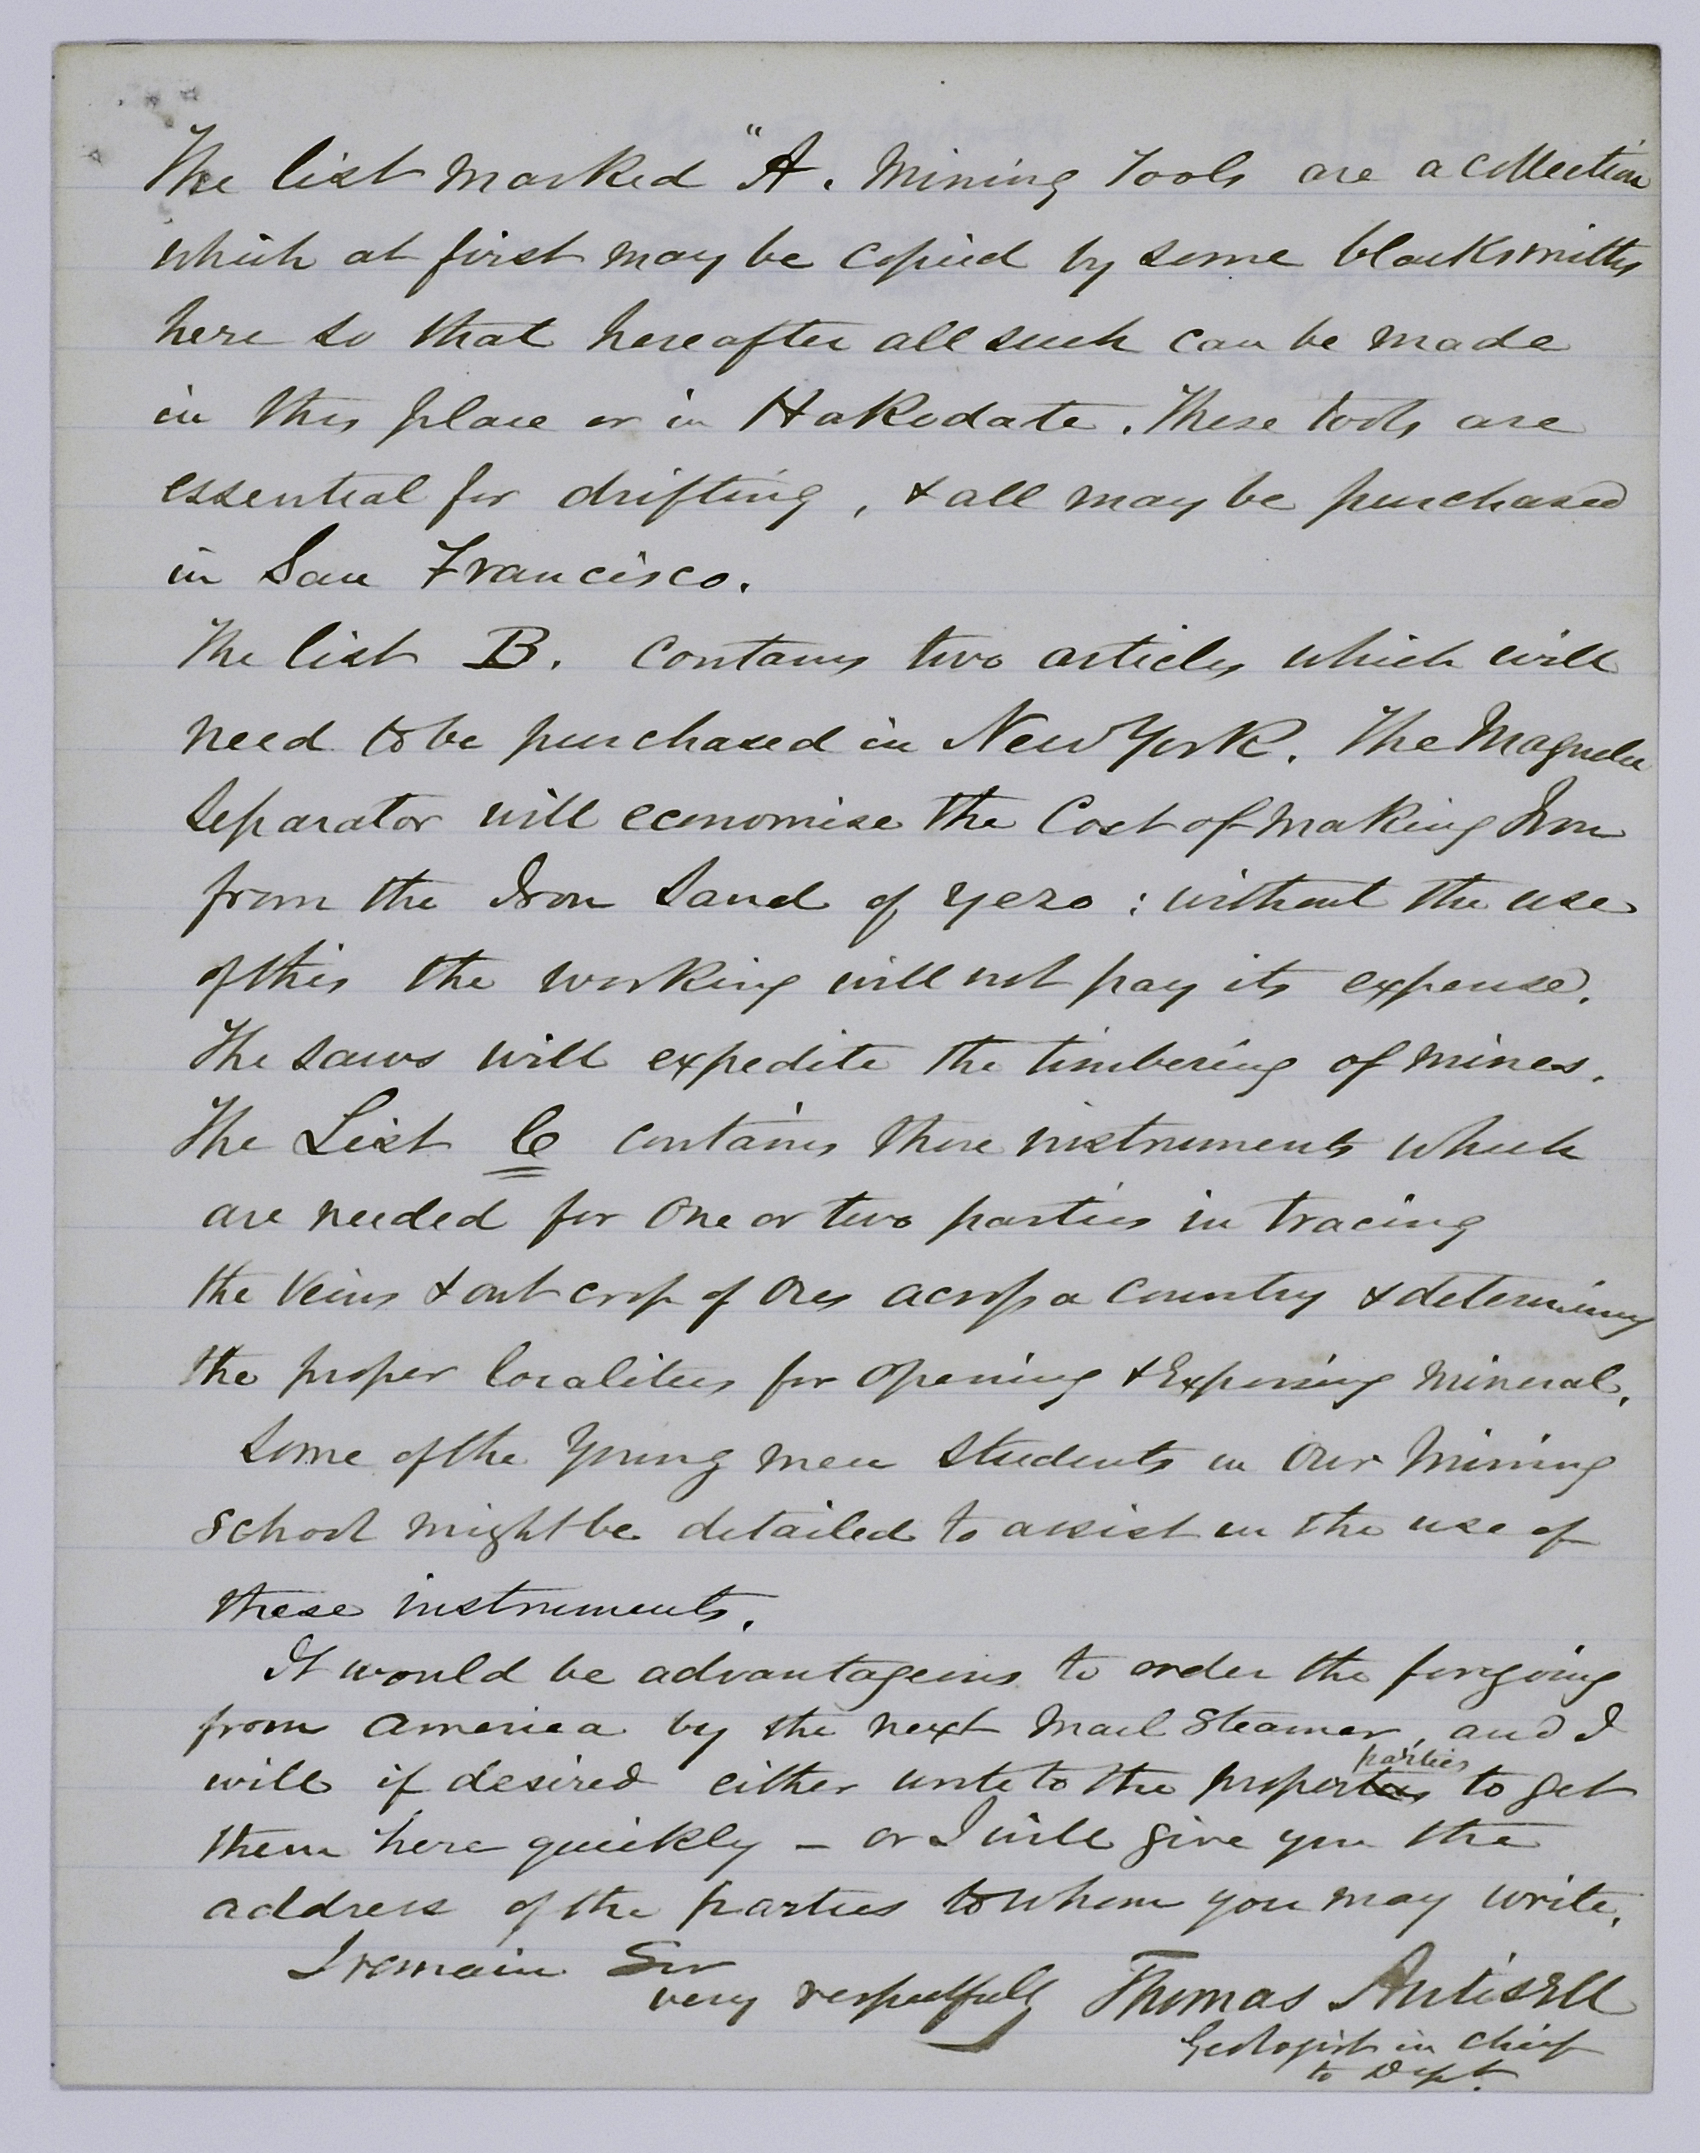 The list marked "A. Mining Tools are a collection
which at first may be copied by some blacksmiths
here so that hereafter all such can be made
in this place or in Hakodate. These tools are
essential for drifting, & all may be purchased
in San Francisco.
The list B. contains two articles which will
need to be purchased in New York. The Magnetic
Separator will economise the Cost of making Iron
from the Iron Sand of Yezo : without the use
of this the working will not pay its expense.
The saws will expedite the timbering of mines.
The List C contains those instruments which
are needed for one or two parties in tracing
the veins & out crop of ores across a country & determining
the proper localities for opening & Exposing mineral.
Some of the Young men Students in our Mining
School might be detailed to assist in the use of
these instruments.
It would be advantageous to order the forgoing
from America by the next Mail Steamer, and I
parties
will if desired either write to the proper to get
them here quickly – or I will give you the
address of the parties to whom you may write.
I remain Sir
very respectfully Thomas Antisell
Geologist in Chief
to Dept.